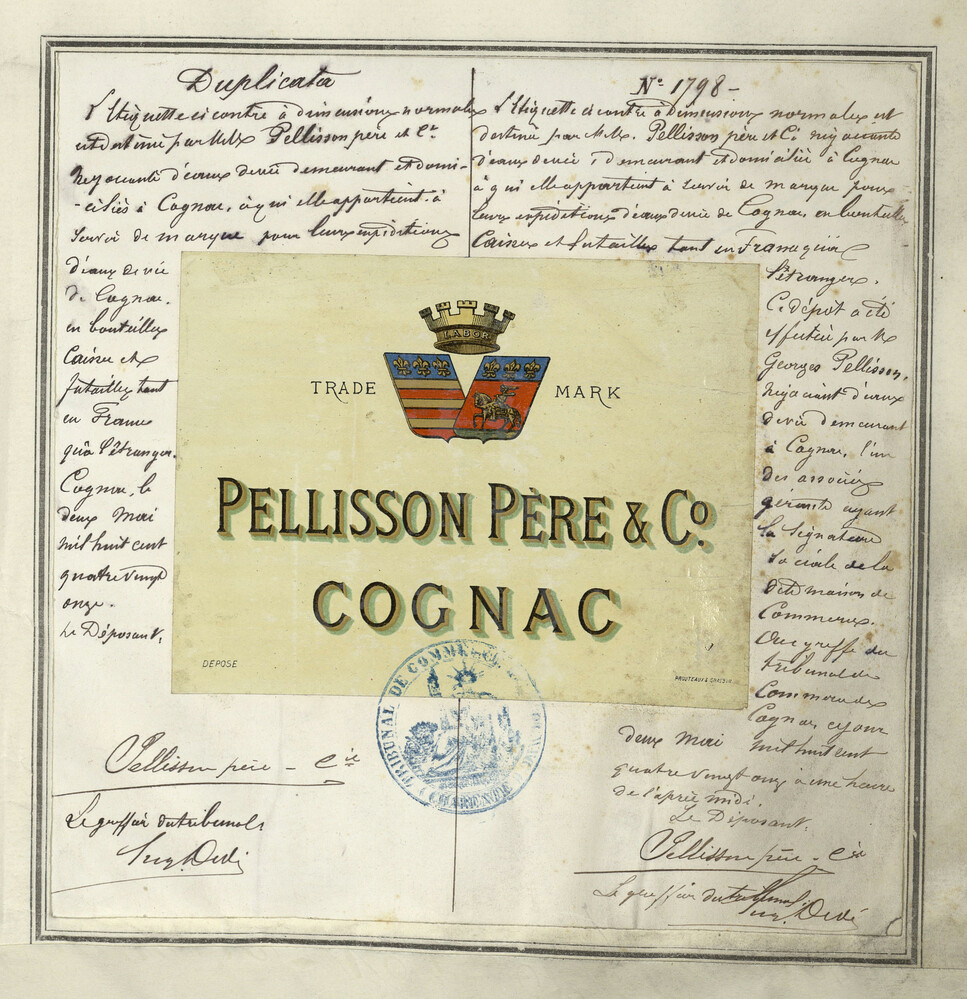 Duplicata
L'Etiquette ci contre à dimensions normales
est destinée par MM. Pellisson père et Cie
Négociants d'eaux de vie demeurant et domi-
-ciliés à Cognac, à qui elle appartient à
servir de marque pour leurs expéditions
d'eaux de vie
de Cognac.
en bouteilles
Caisses et
futailles tant
en France
qu'à l'étranger.
Cognac, le
deux Mai
mil huit cent
quatre vingt
onze.
Le Déposant.
Pellisson père - Cie
Le greffier du tribunal
No 1798 -
L'Etiquette ci contre à Dimensions normales est
destinée par M.M. Pellisson père et Ce négociants
d'eaux de vie, demeurant et domiciliés à Cognac
à qui elle appartient à servir de marque pour
leurs expéditions d'eaux de vie de Cognac, en bouteilles
Caisses et futailles tant en France qu'à
l'étranger.
Ce dépôt a été
effectué par M
Georges Pellisson,
Négociant d'eaux
de vie demeurant
à Cognac, l'un
des associés
gérants ayant
la signature
sociale de la
dite maison de
Commerce.
Au greffe du
tribunal de
Commerce de
Cognac ce jour
deux Mai mil huit cent
quatre vingt onze à une heure
de l'après midi.
Le Déposant.
Pellisson père - Cie
Le greffier du tribunal
LABOR
TRADE MARK
PELLISSON PÈRE & Co.
COGNAC
DÉPOSÉ
TRIBUNAL DE COMMERCE
(CHARENTE)